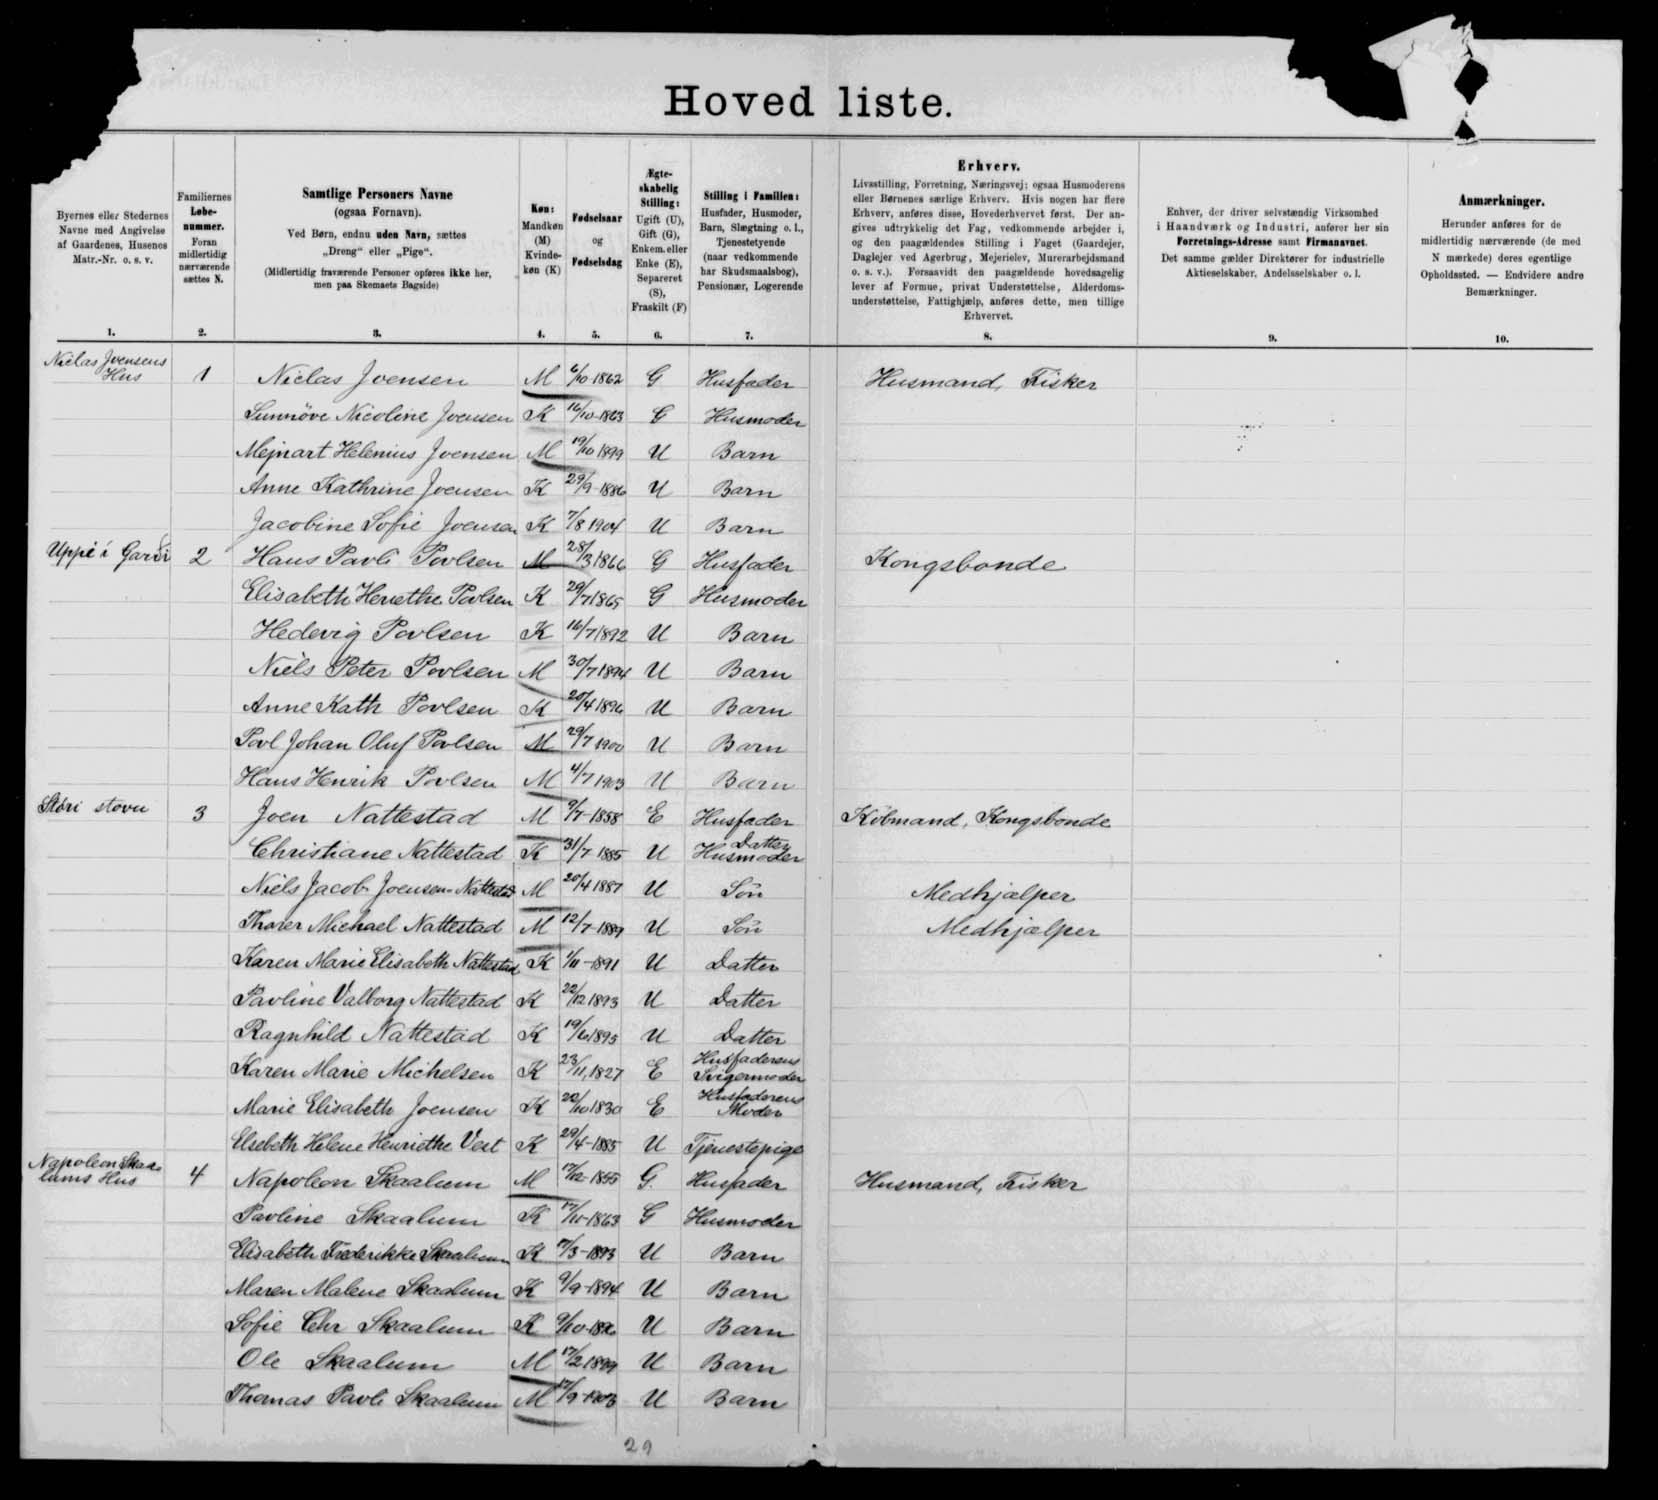 Hoved liste.
Byernes eller Stedernes
Navne med Angivelse
af Gaardenes, Husenes
Matr.-Nr. o. s. v.
1.
Familiernes
Løbe-
nummer.
Foran
midlertidig
nærværende
sættes N.
2.
Samtlige Personers Navne
(ogsaa Fornavn).
Ved Børn, endnu uden Navn, sættes
„Dreng“ eller „Pige“.
(Midlertidig fraværende Personer opføres ikke her,
men paa Skemaets Bagside)
3.
Køn:
Mandkøn
(M)
Kvinde-
køn (K)
4.
Fødselsaar
og
Fødselsdag
5.
Ægte-
skabelig
Stilling:
Ugift (U),
Gift (G),
Enkem. eller
Enke (E),
Separeret
(S),
Fraskilt (F)
6.
Stilling i Familien:
Husfader, Husmoder,
Barn, Slægtning o. l.,
Tjenestetyende
(naar vedkommende
har Skudsmaalsbog),
Pensionær, Logerende
7.
Erhverv.
Livsstilling, Forretning, Næringsvej; ogsaa Husmoderens
eller Børnenes særlige Erhverv. Hvis nogen har flere
Erhverv, anføres disse, Hovederhvervet først. Der an-
gives udtrykkelig det Fag, vedkommende arbejder i,
og den paagældendes Stilling i Faget (Gaardejer,
Daglejer ved Agerbrug, Mejerielev, Murerarbejdsmand
o. s. v.). Forsaavidt den paagældende hovedsagelig
lever af Formue, privat Understøttelse, Alderdoms-
understøttelse, Fattighjælp, anføres dette, men tillige
Erhvervet.
8.
Enhver, der driver selvstændig Virksomhed
i Haandværk og Industri, anfører her sin
Forretnings-Adresse samt Firmanavnet.
Det samme gælder Direktører for industrielle
Aktieselskaber, Andelsselskaber o. l.
9.
Anmærkninger.
Herunder anføres for de
midlertidig nærværende (de med
N mærkede) deres egentlige
Opholdssted. — Endvidere andre
Bemærkninger.
10.
Niclas Joensens
Hus 1 Niclas Joensen M 6/10-1862 G Husfader Husmand, Fisker
Sunnöve Nicoline Joensen K 16/10-1863 G Husmoder
Mejnart Helenius Joensen M 19/10 1899 U Barn
Anne Kathrine Joensen K 29/9-1886 U Barn
Jacobine Sofie Joensen K 7/8 1904 U Barn
Uppi í Garði 2 Hans Pavli Povlsen M 28/3 1866 G Husfader Kongsbonde
Elisabeth Henethe Povlsen K 29/7 1865 G Husmoder
Hedevig Povlsen K 16/7 1892 U Barn
Niels Peter Povlsen M 30/7 1894 U Barn
Anne Kath Povlsen K 20/4 1896 U Barn
Povl Johan Oluf Povlsen M 29/7 1900 U Barn
Hans Henrik Povlsen M 4/7 1903 U Barn
Stóri stovu 3 Joen Nattestad M 9/7-1858 E Husfader Købmand, Kongsbonde
Christiane Nattestad K 31/7 1885 U Datter
Husmoder
Niels Jacob Joensen-Nattestad M 20/4 1887 U Sön Medhjælper
Thorer Michael Nattestad M 12/7-1889 U Sön Medhjælper
Karen Marie Elisabeth Nattestad K 1/11-1891 U Datter
Pavline Valborg Nattestad K 22/12 1893 U Datter
Ragnhild Nattestad K 19/6 1895 U Datter
Karen Marie Michelsen K 23/11, 1827 E Husfaderens
Svigermoder
Marie Elisabeth Joensen K 22/10 1830 E Husfaderens
Moder
Elsebeth Helene Henriethe Vest K 29/4-1885 U Tjenestepige
Napoleon Skaa-
lums Hus 4 Napoleon Skaalum M 17/12-1855 G. Husfader Husmand, Fisker
Pavline Skaalum K 17/10-1863 G Husmoder
Elisabeth Frederikke Skaalum K 7/3-1893 U Barn
Maren Malene Skaalum K 9/9-1894 U Barn
Sofie Chr Skaalum K 9/10-1896 U Barn
Ole Skaalum M 17/2 1899 U Barn
Thomas Pavli Skaalum M 17/9-1903 U Barn
29